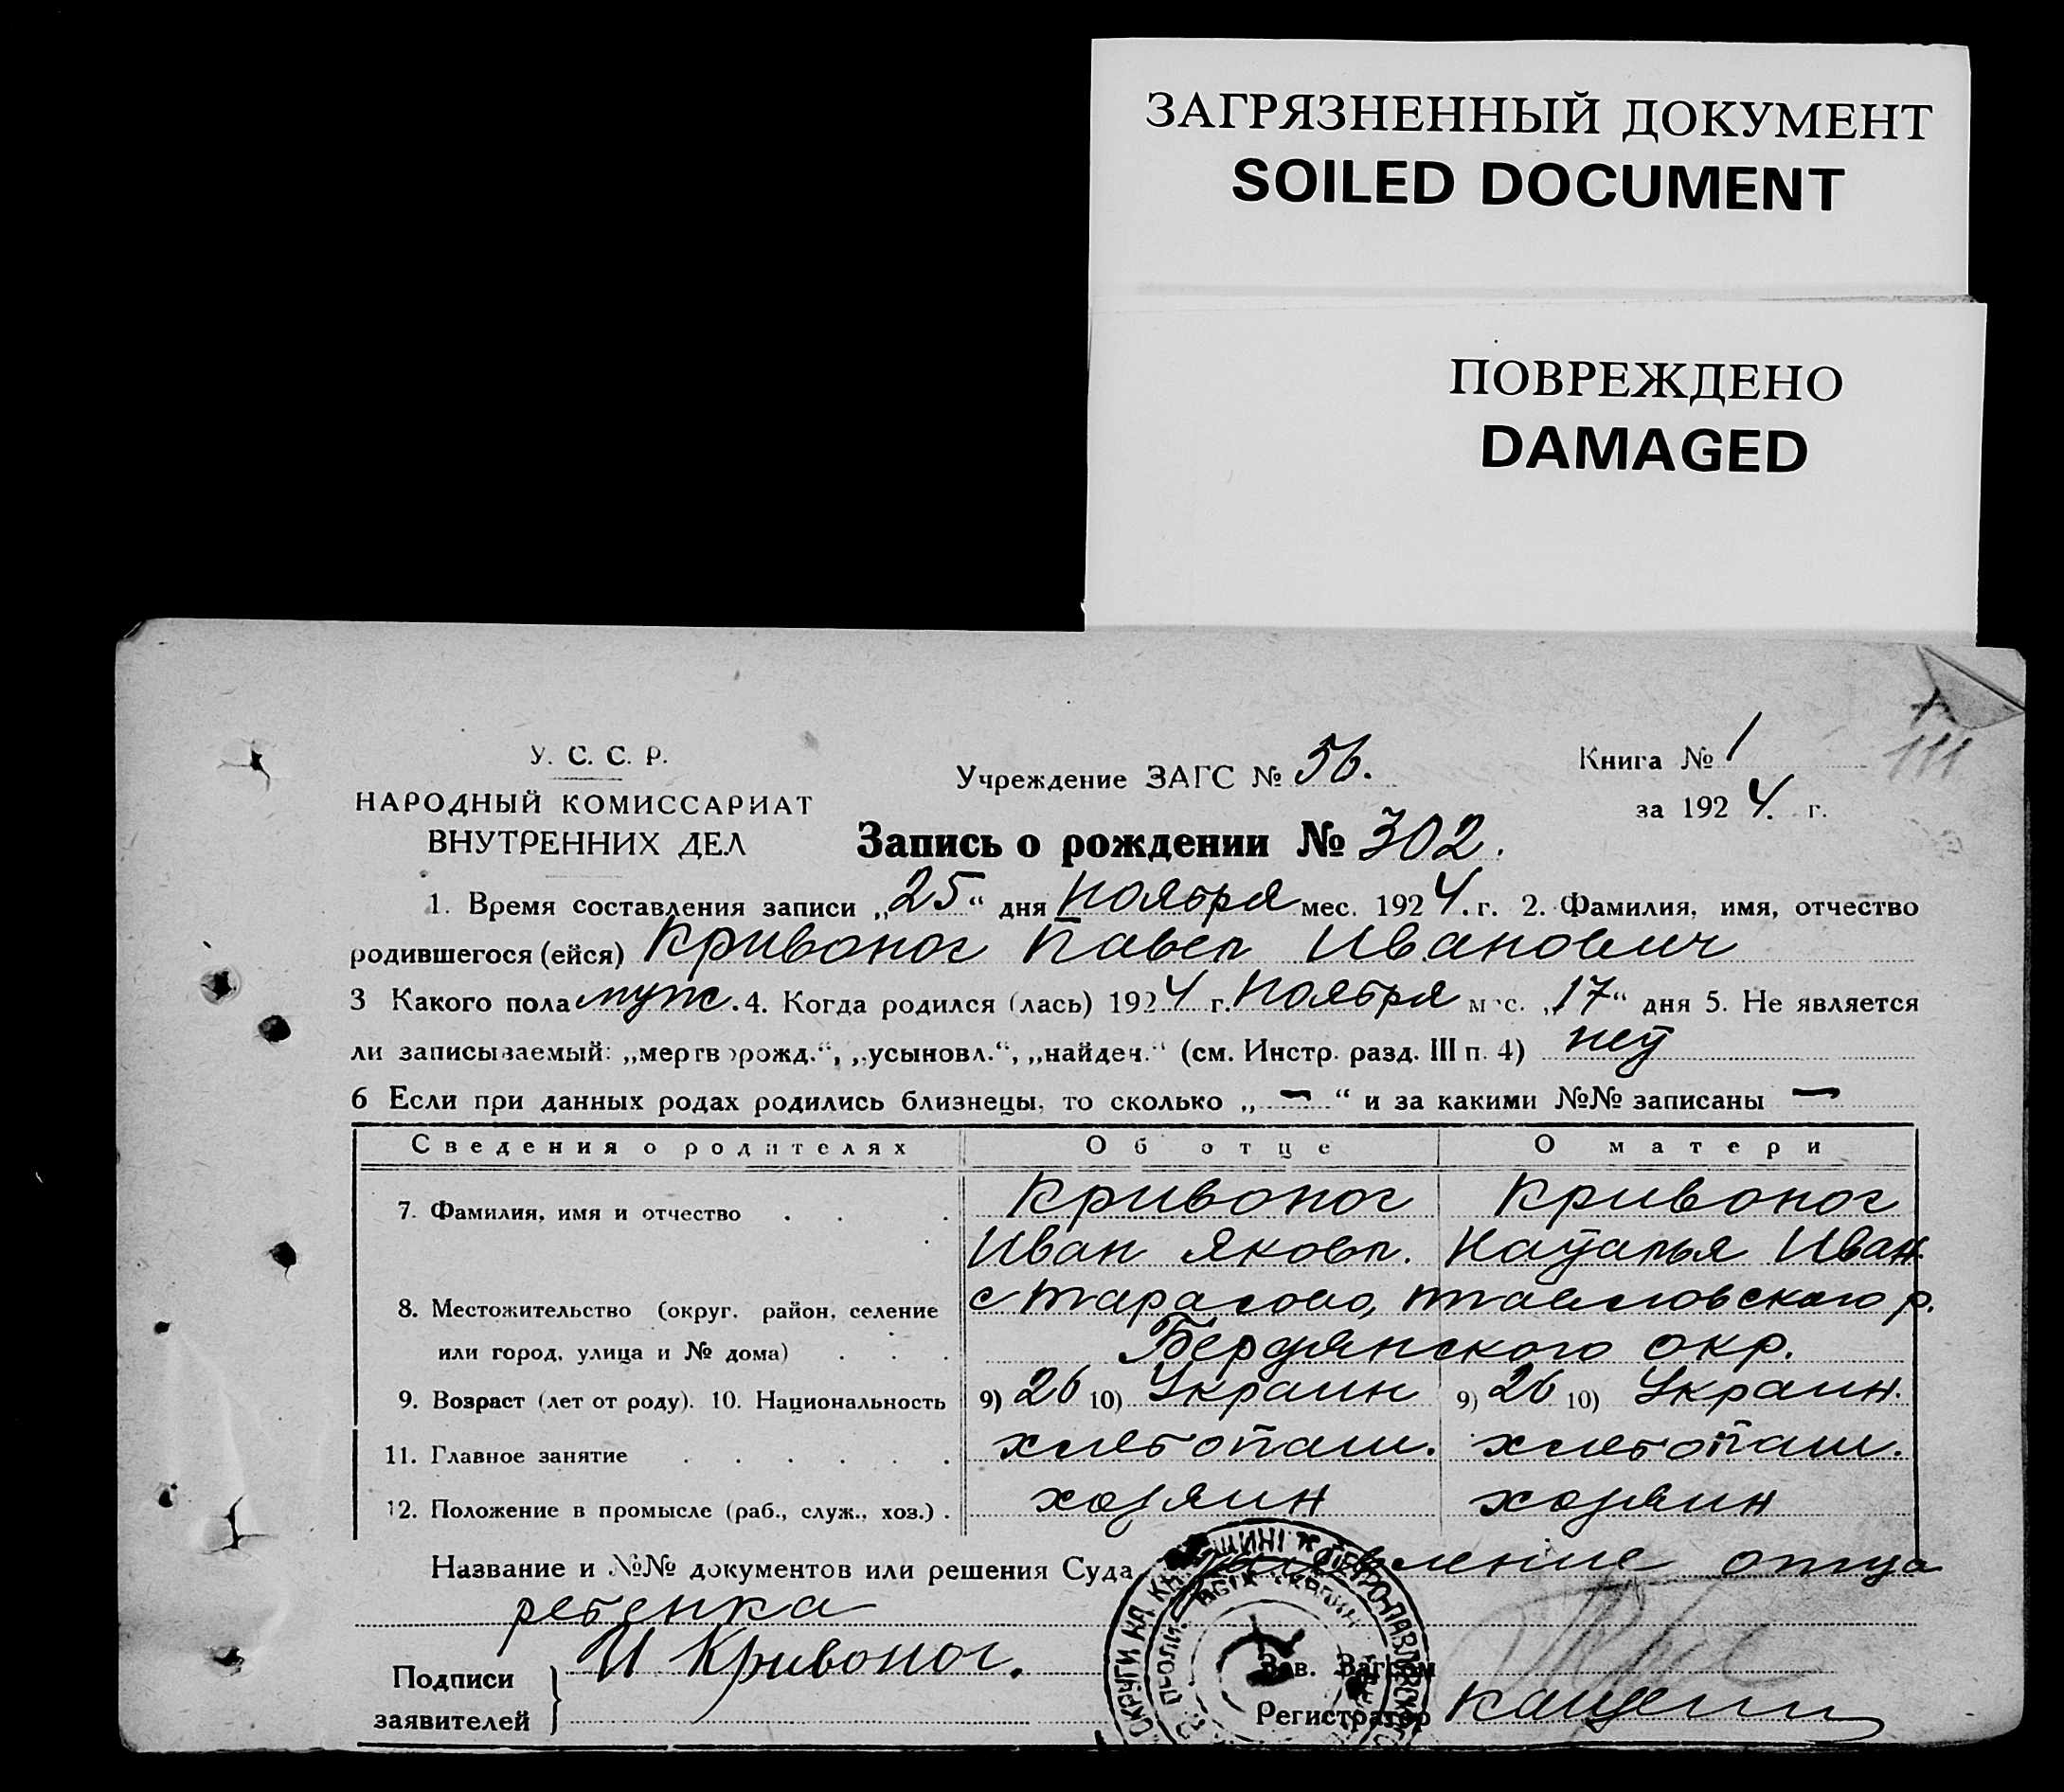 ЗАГРЯЗНЕННЫЙ ДОКУМЕНТ
SOILED DOCUMENT
ПОВРЕЖДЕНО
DAMAGED
111
У. С. С. Р.
НАРОДНЫЙ КОМИССАРИАТ
ВНУТРЕННИХ ДЕЛ
Учреждение ЗАГС № 56.
Книга № 1
за 1924. г.
Запись о рождении № 302.
1. Время составления записи „25“ дня Ноября мес. 1924. г. 2. Фамилия, имя, отчество
родившегося (ейся) Кривонос Павел Иванович
3 Какого пола муж. 4. Когда родился (лась) 1924 г. Ноября мес. „17“ дня 5. Не является
ли записываемый: „мертворожд.“, „усыновл.“, „найден.“ (см. Инстр. разд. III п. 4) нет
6 Если при данных родах родились близнецы, то сколько „ — “ и за какими №№ записаны —
Сведения о родителях Об отце О матери
7. Фамилия, имя и отчество . . . Кривонос Кривонос
Иван Яковл. Наталья Иван.
8. Местожительство (округ, район, селение с Тарасово, р.
или город, улица и № дома) . . . Бердянского окр.
9. Возраст (лет от роду). 10. Национальность 9) 26 10) Украин 9) 26 10) Украин.
11. Главное занятие . . . . . . хлебопаш. хлебопаш.
12. Положение в промысле (раб., служ., хоз.) . хозяин хозяин
Название и №№ документов или решения Суда заявление отца
ребенка
Подписи
заявителей
И Кривонос.
Зав. Загсом
Регистратор